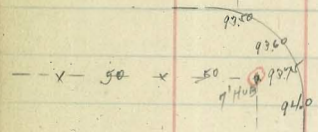 93.50
93.60
x 50 x 50 93.75
7' HUB
94.0